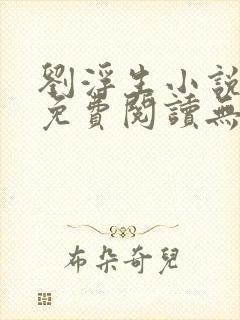 劉浮生小說
免費閱讀無
布朵奇兒